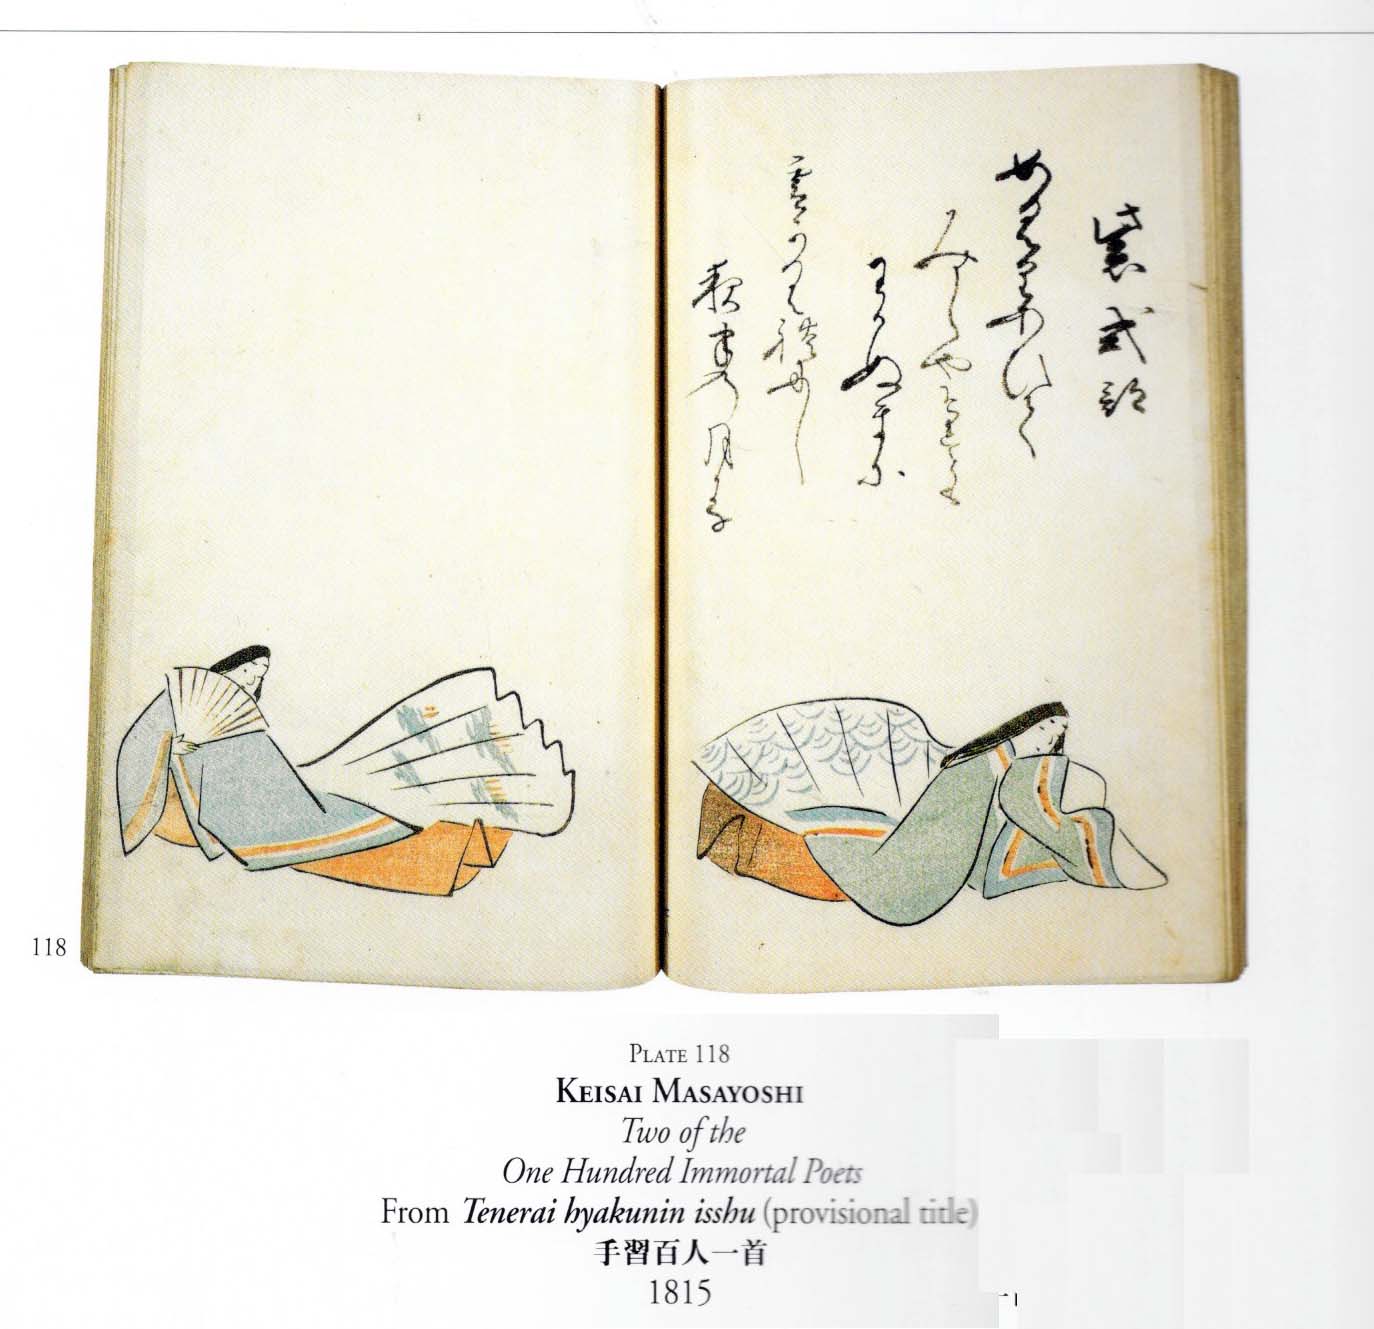 紫式部
めくりあひて
みしやそれとも
わかぬまに
雲かくれにし
夜半の月かな
118
PLATE 118
KEISAI MASAYOSHI
Two of the
One Hundred Immortal Poets
From Tenerai hyakunin isshu (provisional title)
手習百人一首
1815